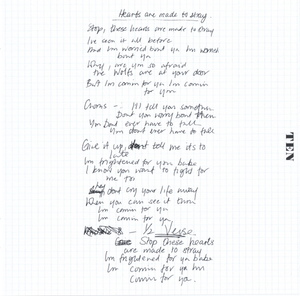 Hearts are made to stray.
Stop, these hearts are made to stray
I've seen it all before
And I'm worried bout ya I'm worried
bout ya
Why, are you so afraid
the Wolfs are at your door
But I'm comin for ya I'm comin
for you
Chorus -: I'll tell you somethin
Dont you worry bout them
You Dont ever have to tell..
You dont ever have to tell
Give it up, dont tell me its to
late
Im frightened for you babe
I know you want to fight for
me to
dont cry your life away
When you can see it then
Im comin for ya
Im comin for ya.
- 1/2 Verse.
Stop these hearts
are made to stray
Im frightened for ya babe
Im comin for ya Im
comin for ya.
TEN